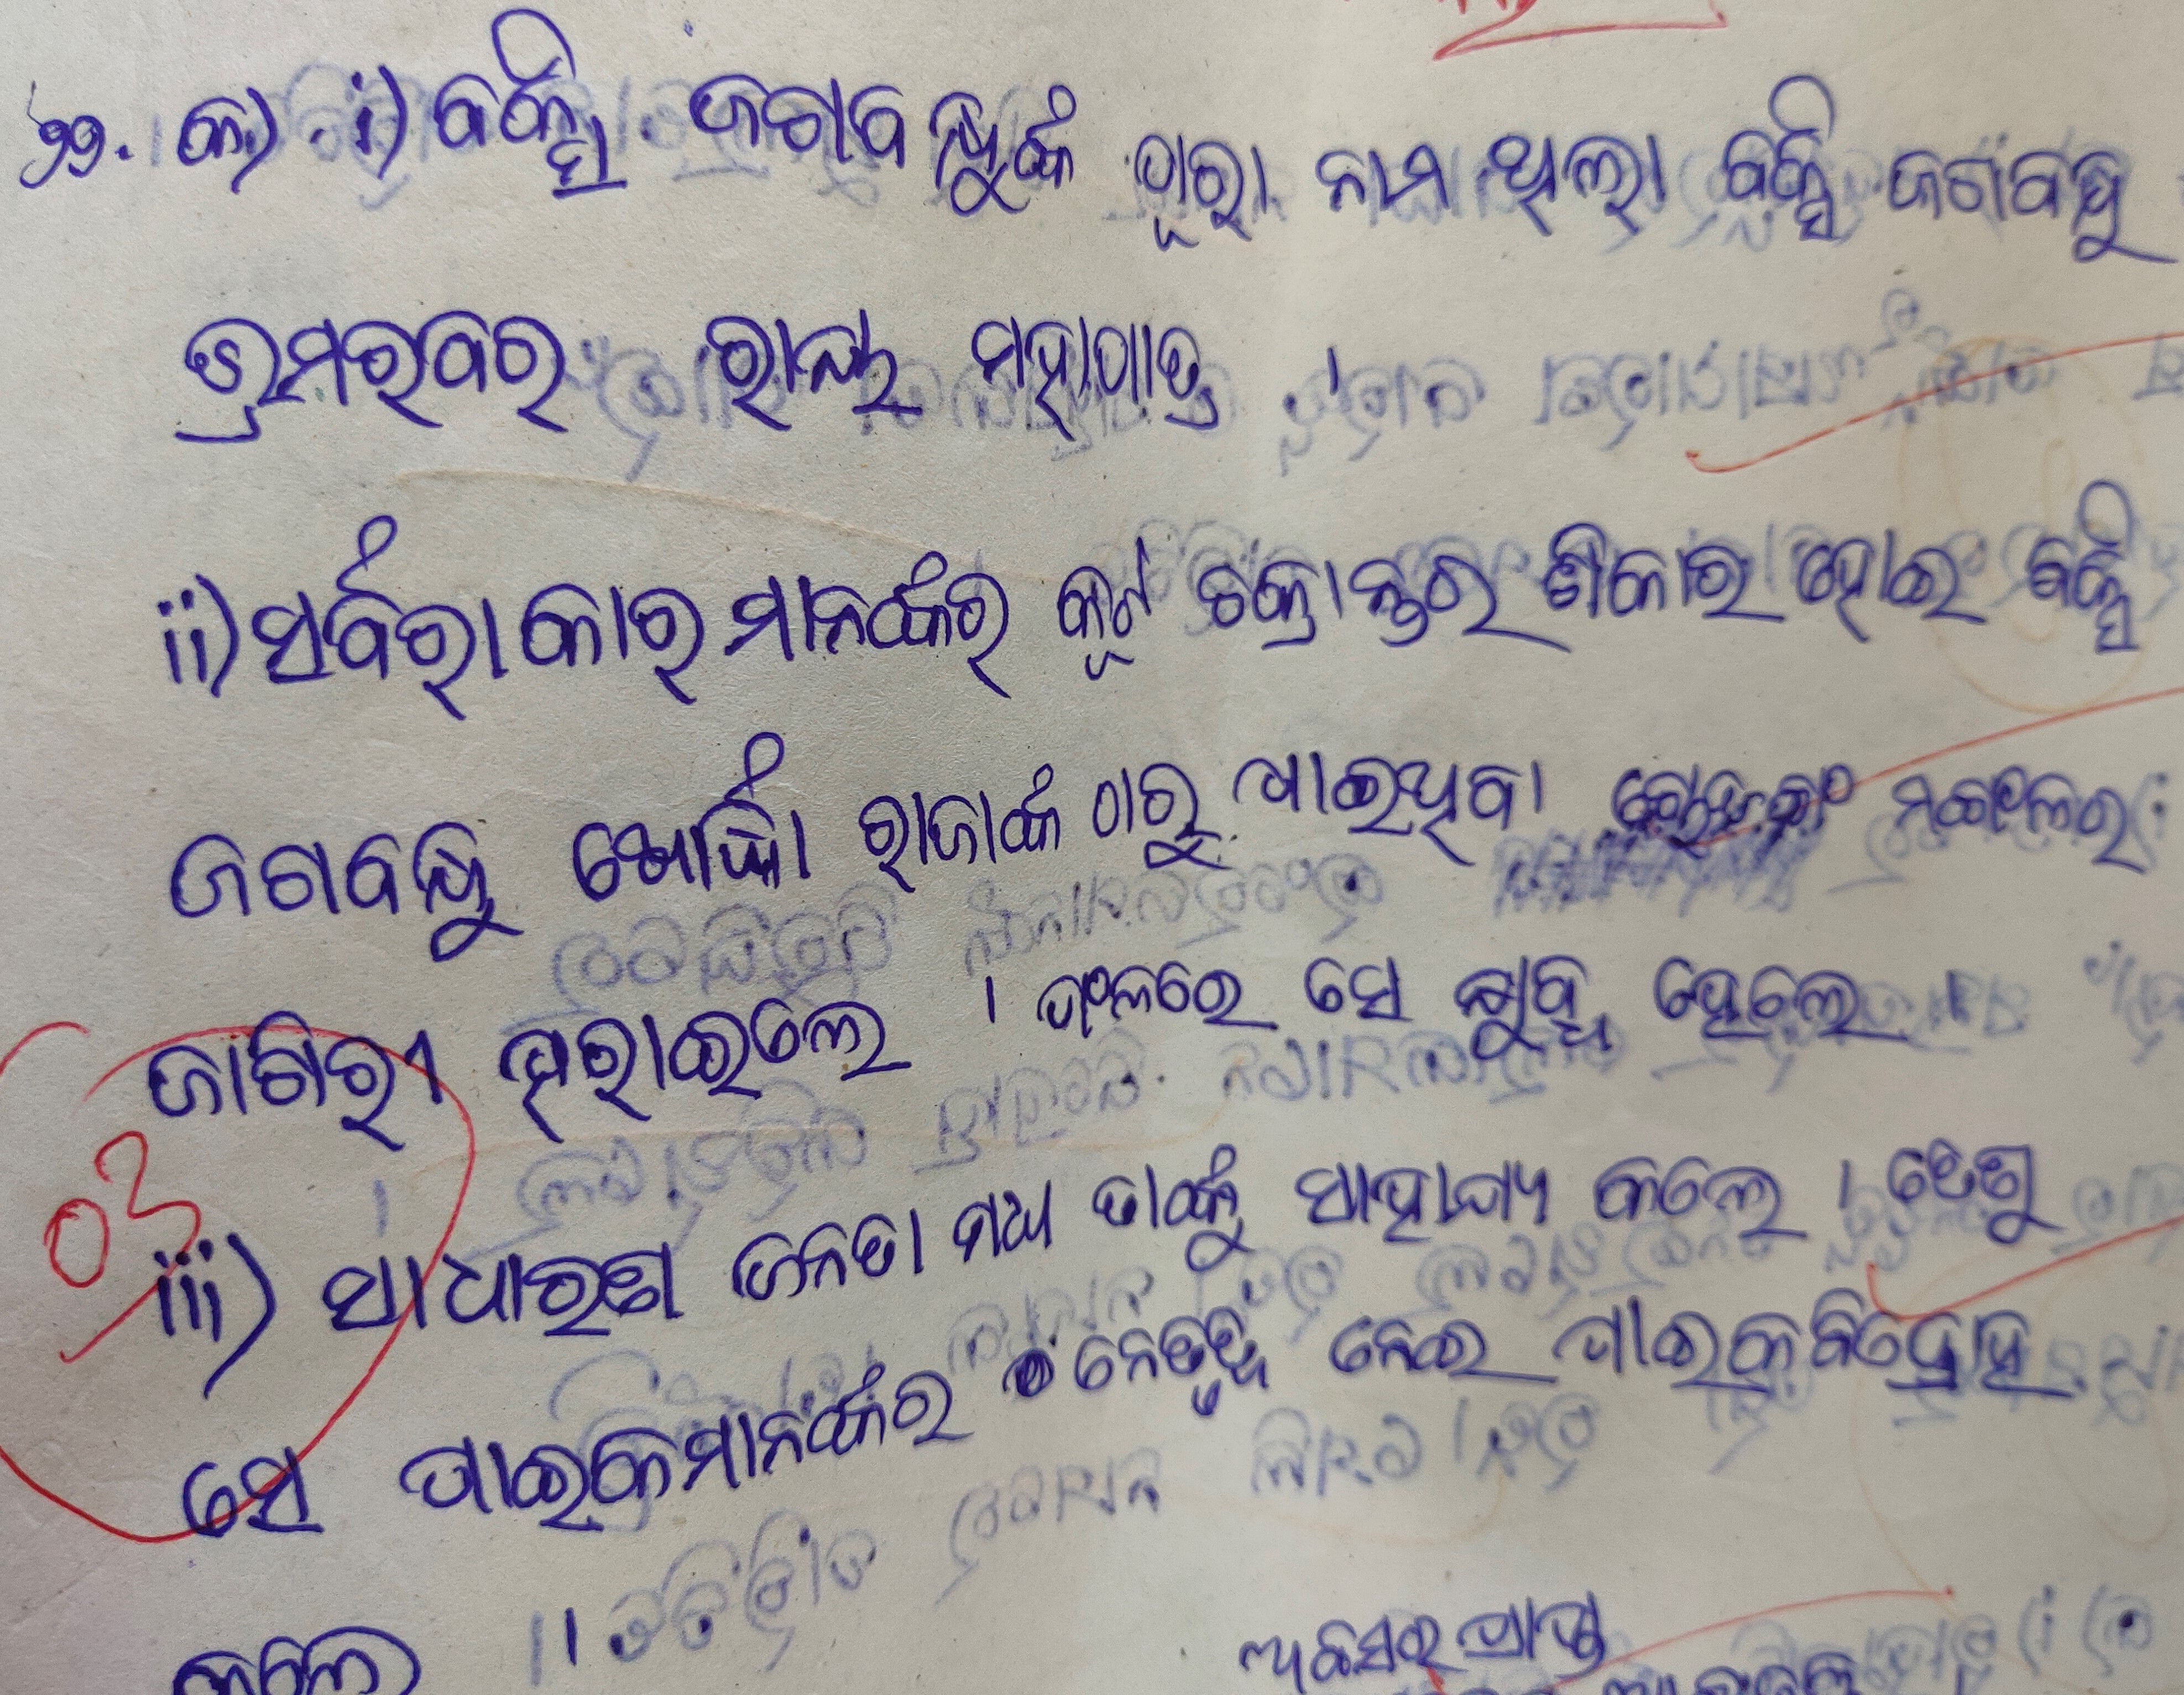 ୨୨. କ) i) ବକ୍ସି ଜଗବନ୍ଧୁଙ୍କ ପୂରା ନାମ ଥିଲା ବକ୍ସି ଜଗବନ୍ଧୁ
ଭ୍ରମରବର ରାୟ ମହାପାତ୍ର ।
ii) ସର୍ବରାକାରମାନଙ୍କର କୂଟ ଚକ୍ରାନ୍ତର ଶିକାର ହୋଇ ବକ୍ସି
ଜଗବନ୍ଧୁ ଖୋର୍ଦ୍ଧା ରାଜାଙ୍କ ଠାରୁ ପାଇଥିବା
ଜାଗିରୀ ହରାଇଲେ । ଫଳରେ ସେ କ୍ଷୁବ୍ଧ ହେଲେ ।
iii) ସାଧାରଣ ଜନତା ମଧ୍ୟ ତାଙ୍କୁ ସାହାଯ୍ୟ କଲେ । ତେଣୁ
ସେ ପାଇକମାନଙ୍କର ନେତୃତ୍ୱ ନେଇ ପାଇକବିଦ୍ରୋହ
କଲେ ।
ଅବସର ପ୍ରାପ୍ତ